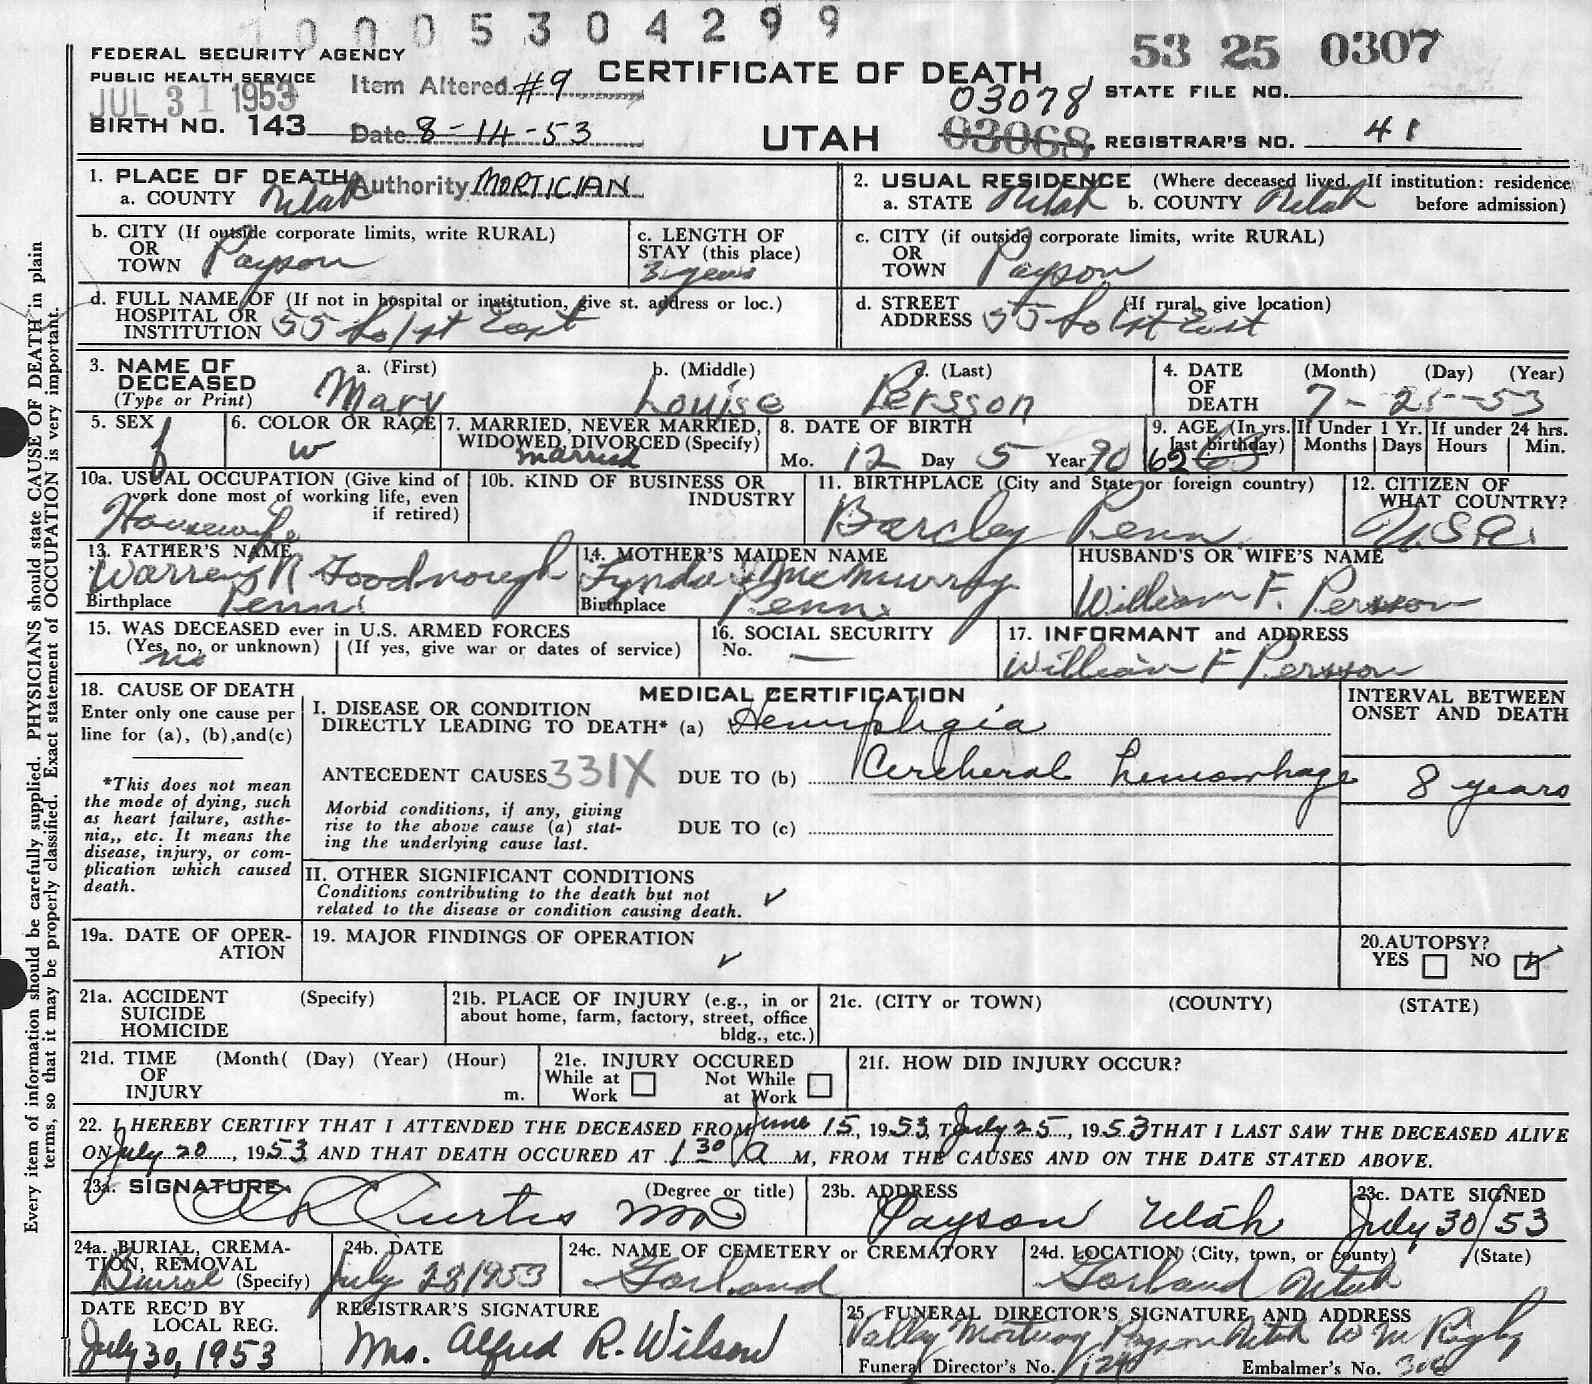 10005304299
53 25 0307
FEDERAL SECURITY AGENCY
PUBLIC HEALTH SERVICE
JUL 31 1953
Item Altered #9
CERTIFICATE OF DEATH
03078
STATE FILE NO.
BIRTH NO. 143
Date 8-14-53
UTAH
03068
REGISTRAR'S NO. 41
1. PLACE OF DEATH
Authority MORTICIAN
a. COUNTY Utah
2. USUAL RESIDENCE (Where deceased lived. If institution: residence before admission)
a. STATE Utah b. COUNTY Utah
b. CITY (If outside corporate limits, write RURAL)
OR
TOWN Payson
c. LENGTH OF
STAY (this place)
3 years
c. CITY (if outside corporate limits, write RURAL)
OR
TOWN Payson
d. FULL NAME OF (If not in hospital or institution, give st. address or loc.)
HOSPITAL OR
INSTITUTION 55 So 1st East
d. STREET (If rural, give location)
ADDRESS 55 So 1st East
3. NAME OF
DECEASED
(Type or Print)
a. (First) b. (Middle) c. (Last)
Mary Louise Persson
4. DATE
OF
DEATH
(Month) (Day) (Year)
7-25-53
5. SEX
f
6. COLOR OR RACE
w
7. MARRIED, NEVER MARRIED,
WIDOWED, DIVORCED (Specify)
married
8. DATE OF BIRTH
Mo. 12 Day 5 Year 90
9. AGE (In yrs.
last birthday)
62 63
If Under 1 Yr.
Months Days
If under 24 hrs.
Hours Min.
10a. USUAL OCCUPATION (Give kind of
work done most of working life, even
if retired)
Housewife
10b. KIND OF BUSINESS OR
INDUSTRY
11. BIRTHPLACE (City and State or foreign country)
Barcley Penn.
12. CITIZEN OF
WHAT COUNTRY?
U.S.A.
13. FATHER'S NAME
Warren N Goodnough
Birthplace Penn.
14. MOTHER'S MAIDEN NAME
Lynda McMurray
Birthplace Penn.
HUSBAND'S OR WIFE'S NAME
William F. Persson
15. WAS DECEASED ever in U.S. ARMED FORCES
(Yes, no, or unknown) (If yes, give war or dates of service)
no
16. SOCIAL SECURITY
No. —
17. INFORMANT and ADDRESS
William F Persson
18. CAUSE OF DEATH
Enter only one cause per
line for (a), (b),and(c)
*This does not mean
the mode of dying, such
as heart failure, asthe-
nia,, etc. It means the
disease, injury, or com-
plication which caused
death.
MEDICAL CERTIFICATION
I. DISEASE OR CONDITION
DIRECTLY LEADING TO DEATH* (a) Hemiplegia
ANTECEDENT CAUSES 331X DUE TO (b) Cerebral hemorrhage
Morbid conditions, if any, giving
rise to the above cause (a) stat-
ing the underlying cause last.
DUE TO (c)
INTERVAL BETWEEN
ONSET AND DEATH
8 years
II. OTHER SIGNIFICANT CONDITIONS
Conditions contributing to the death but not
related to the disease or condition causing death.
19a. DATE OF OPER-
ATION
19. MAJOR FINDINGS OF OPERATION
20. AUTOPSY?
YES NO
21a. ACCIDENT (Specify)
SUICIDE
HOMICIDE
21b. PLACE OF INJURY (e.g., in or
about home, farm, factory, street, office
bldg., etc.)
21c. (CITY or TOWN) (COUNTY) (STATE)
21d. TIME (Month( (Day) (Year) (Hour)
OF
INJURY m.
21e. INJURY OCCURED
While at Work Not While at Work
21f. HOW DID INJURY OCCUR?
22. I HEREBY CERTIFY THAT I ATTENDED THE DECEASED FROM June 15, 1953, T July 25, 1953 THAT I LAST SAW THE DECEASED ALIVE
ON July 20, 1953 AND THAT DEATH OCCURED AT 1 30 a M, FROM THE CAUSES AND ON THE DATE STATED ABOVE.
23a. SIGNATURE (Degree or title)
Curtis MD
23b. ADDRESS
Payson Utah
23c. DATE SIGNED
July 30/53
24a. BURIAL, CREMA-
TION, REMOVAL
(Specify)
Burial
24b. DATE
July 28 1953
24c. NAME OF CEMETERY or CREMATORY
Garland
24d. LOCATION (City, town, or county) (State)
Garland Utah
DATE REC'D BY
LOCAL REG.
July 30, 1953
REGISTRAR'S SIGNATURE
Mrs. Alfred R. Wilson
25. FUNERAL DIRECTOR'S SIGNATURE AND ADDRESS
Valley Mortuary Payson Utah W M Rigby
Funeral Director's No. Embalmer's No.
Every item of information should be carefully supplied. PHYSICIANS should state CAUSE OF DEATH in plain
terms, so that it may be properly classified. Exact statement of OCCUPATION is very important.